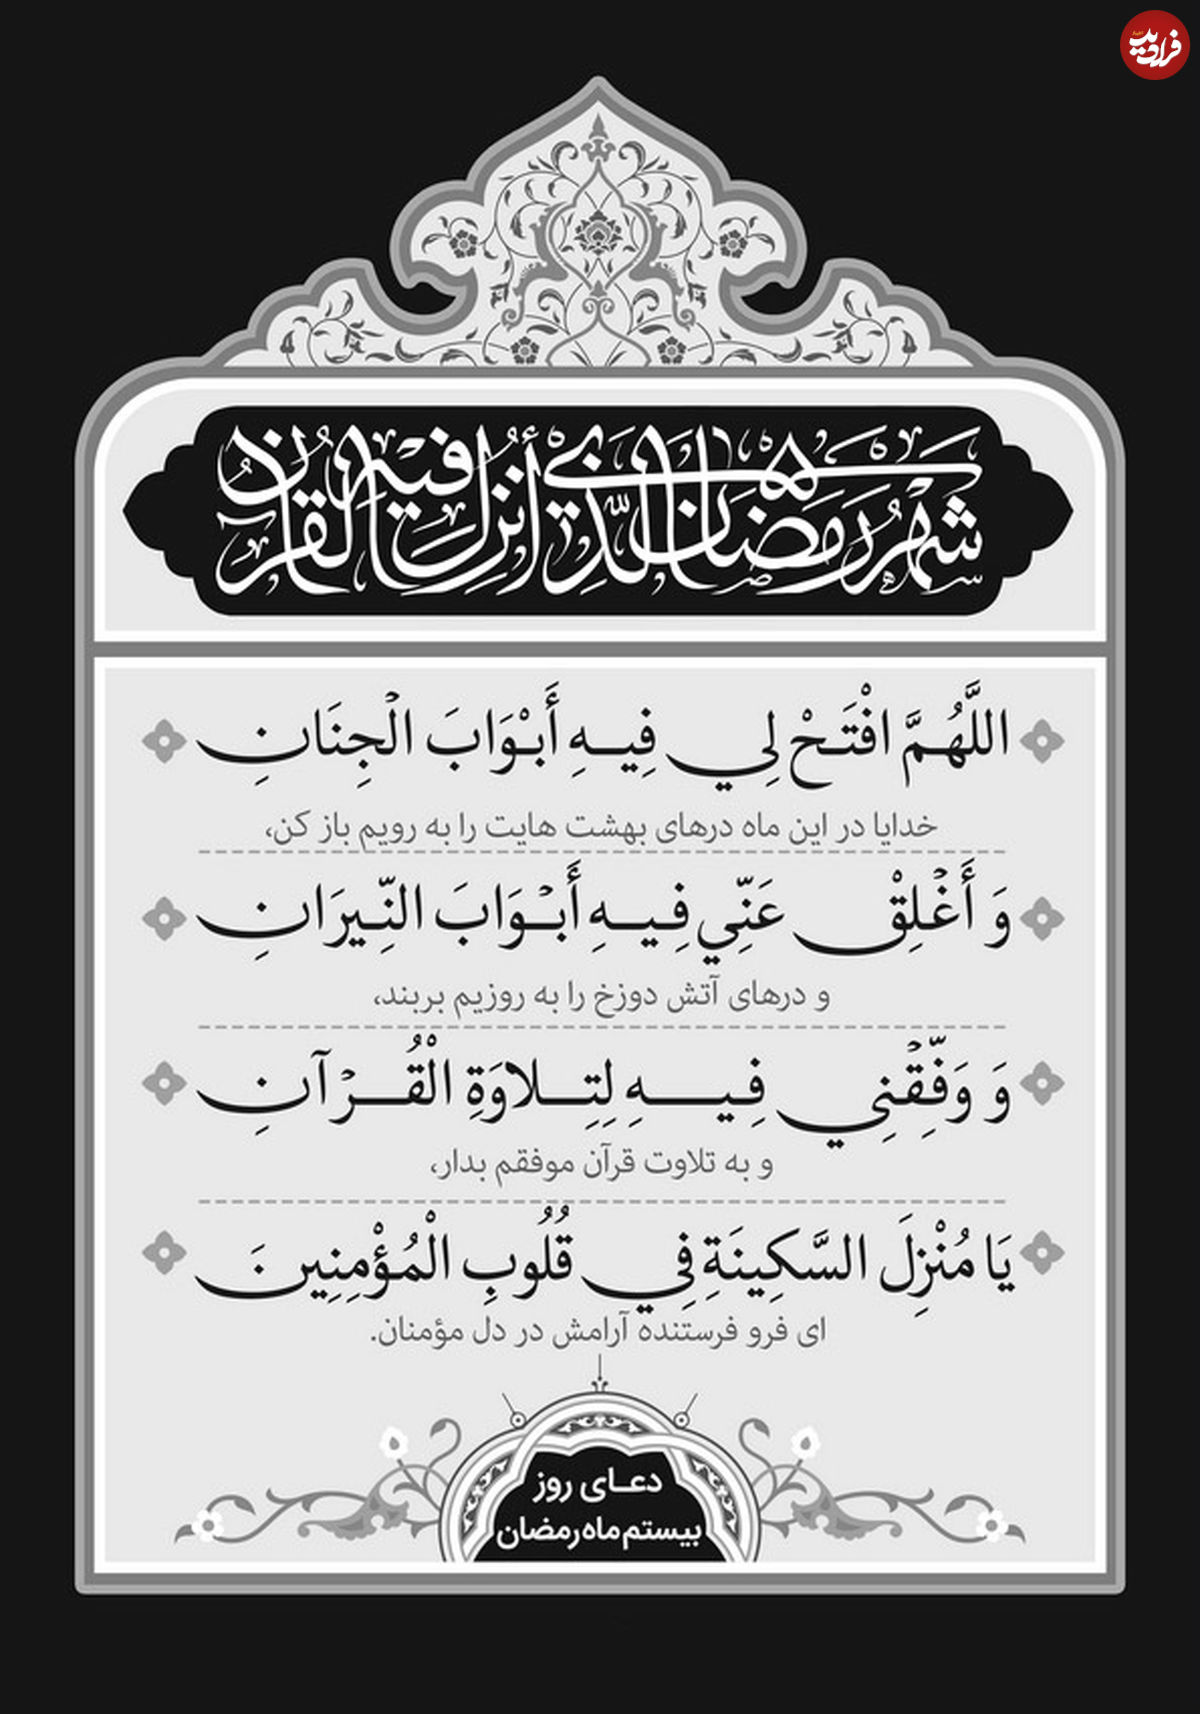 فرادید
شَهرُ رَمَضانَ الَّذِي أُنزِلَ فيهِ القُرآنُ
اللَّهُمَّ افْتَحْ لِي فِيهِ أَبْوَابَ الْجِنَانِ
خدایا در این ماه درهای بهشت هایت را به رویم باز کن،
وَ أَغْلِقْ عَنِّي فِيهِ أَبْوَابَ النِّيرَانِ
و درهای آتش دوزخ را به روزیم بربند،
وَ وَفِّقْنِي فِيهِ لِتِلاوَةِ الْقُرْآنِ
و به تلاوت قرآن موفقم بدار،
يَا مُنْزِلَ السَّكِينَةِ فِي قُلُوبِ الْمُؤْمِنِينَ
ای فرو فرستنده آرامش در دل مؤمنان.
دعای روز
بیستم ماه رمضان